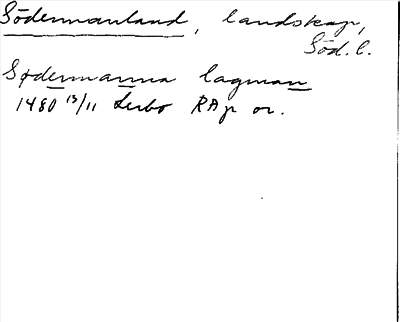 Södermanland, landskap,
Söd. l.
Sødermanna lagman
1480 13/11 Lerbo RAp or.